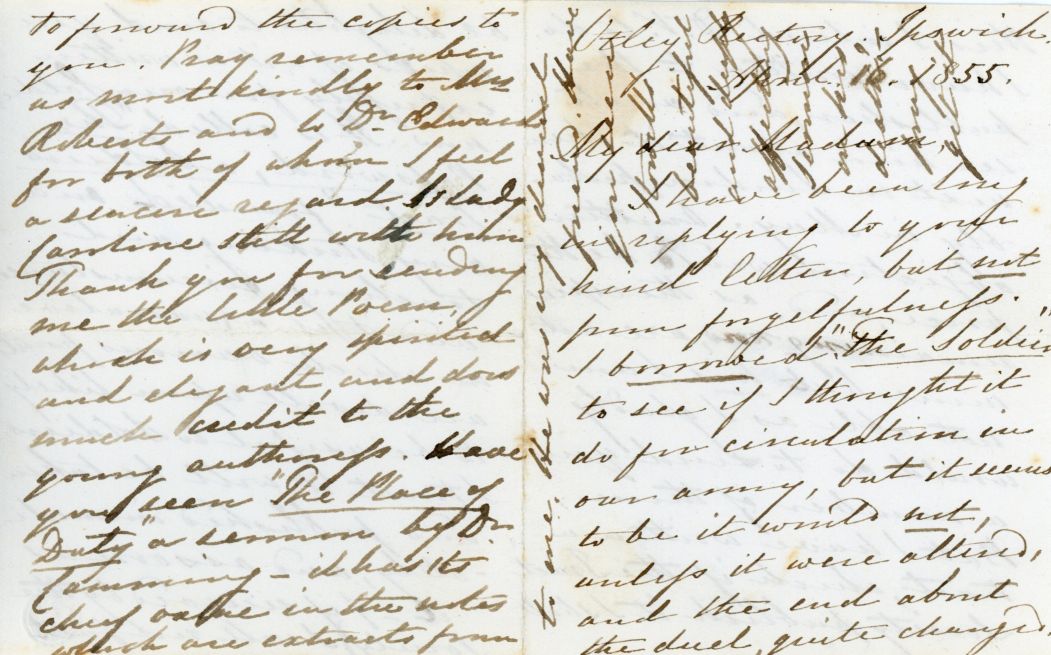 to forward the copies to
you. Pray remember
us most kindly to Mrs
Roberts and to Dr. Edwards
for both of whom I feel
a sincere regard. Is Lady
Caroline still with him
Thank you for sending
me the little Poem,
which is very spirited
and elegant, and does
much credit to the
young authoress. Have
you seen "The Place of
Duty" a sermon by Dr
Cumming - it has its
chief value in the notes
which are extracts from
Otley Rectory. Ipswich.
April. 16. 1855.
My dear Madam,
I have been long
in replying to your
kind letter, but not
from forgetfulness.
I borrowed "The Soldier"
to see if I thought it
do for circulation in
our army, but it seems
to be it would not,
unless it were altered,
and the end about
the duel, quite changed.
to me. He was any